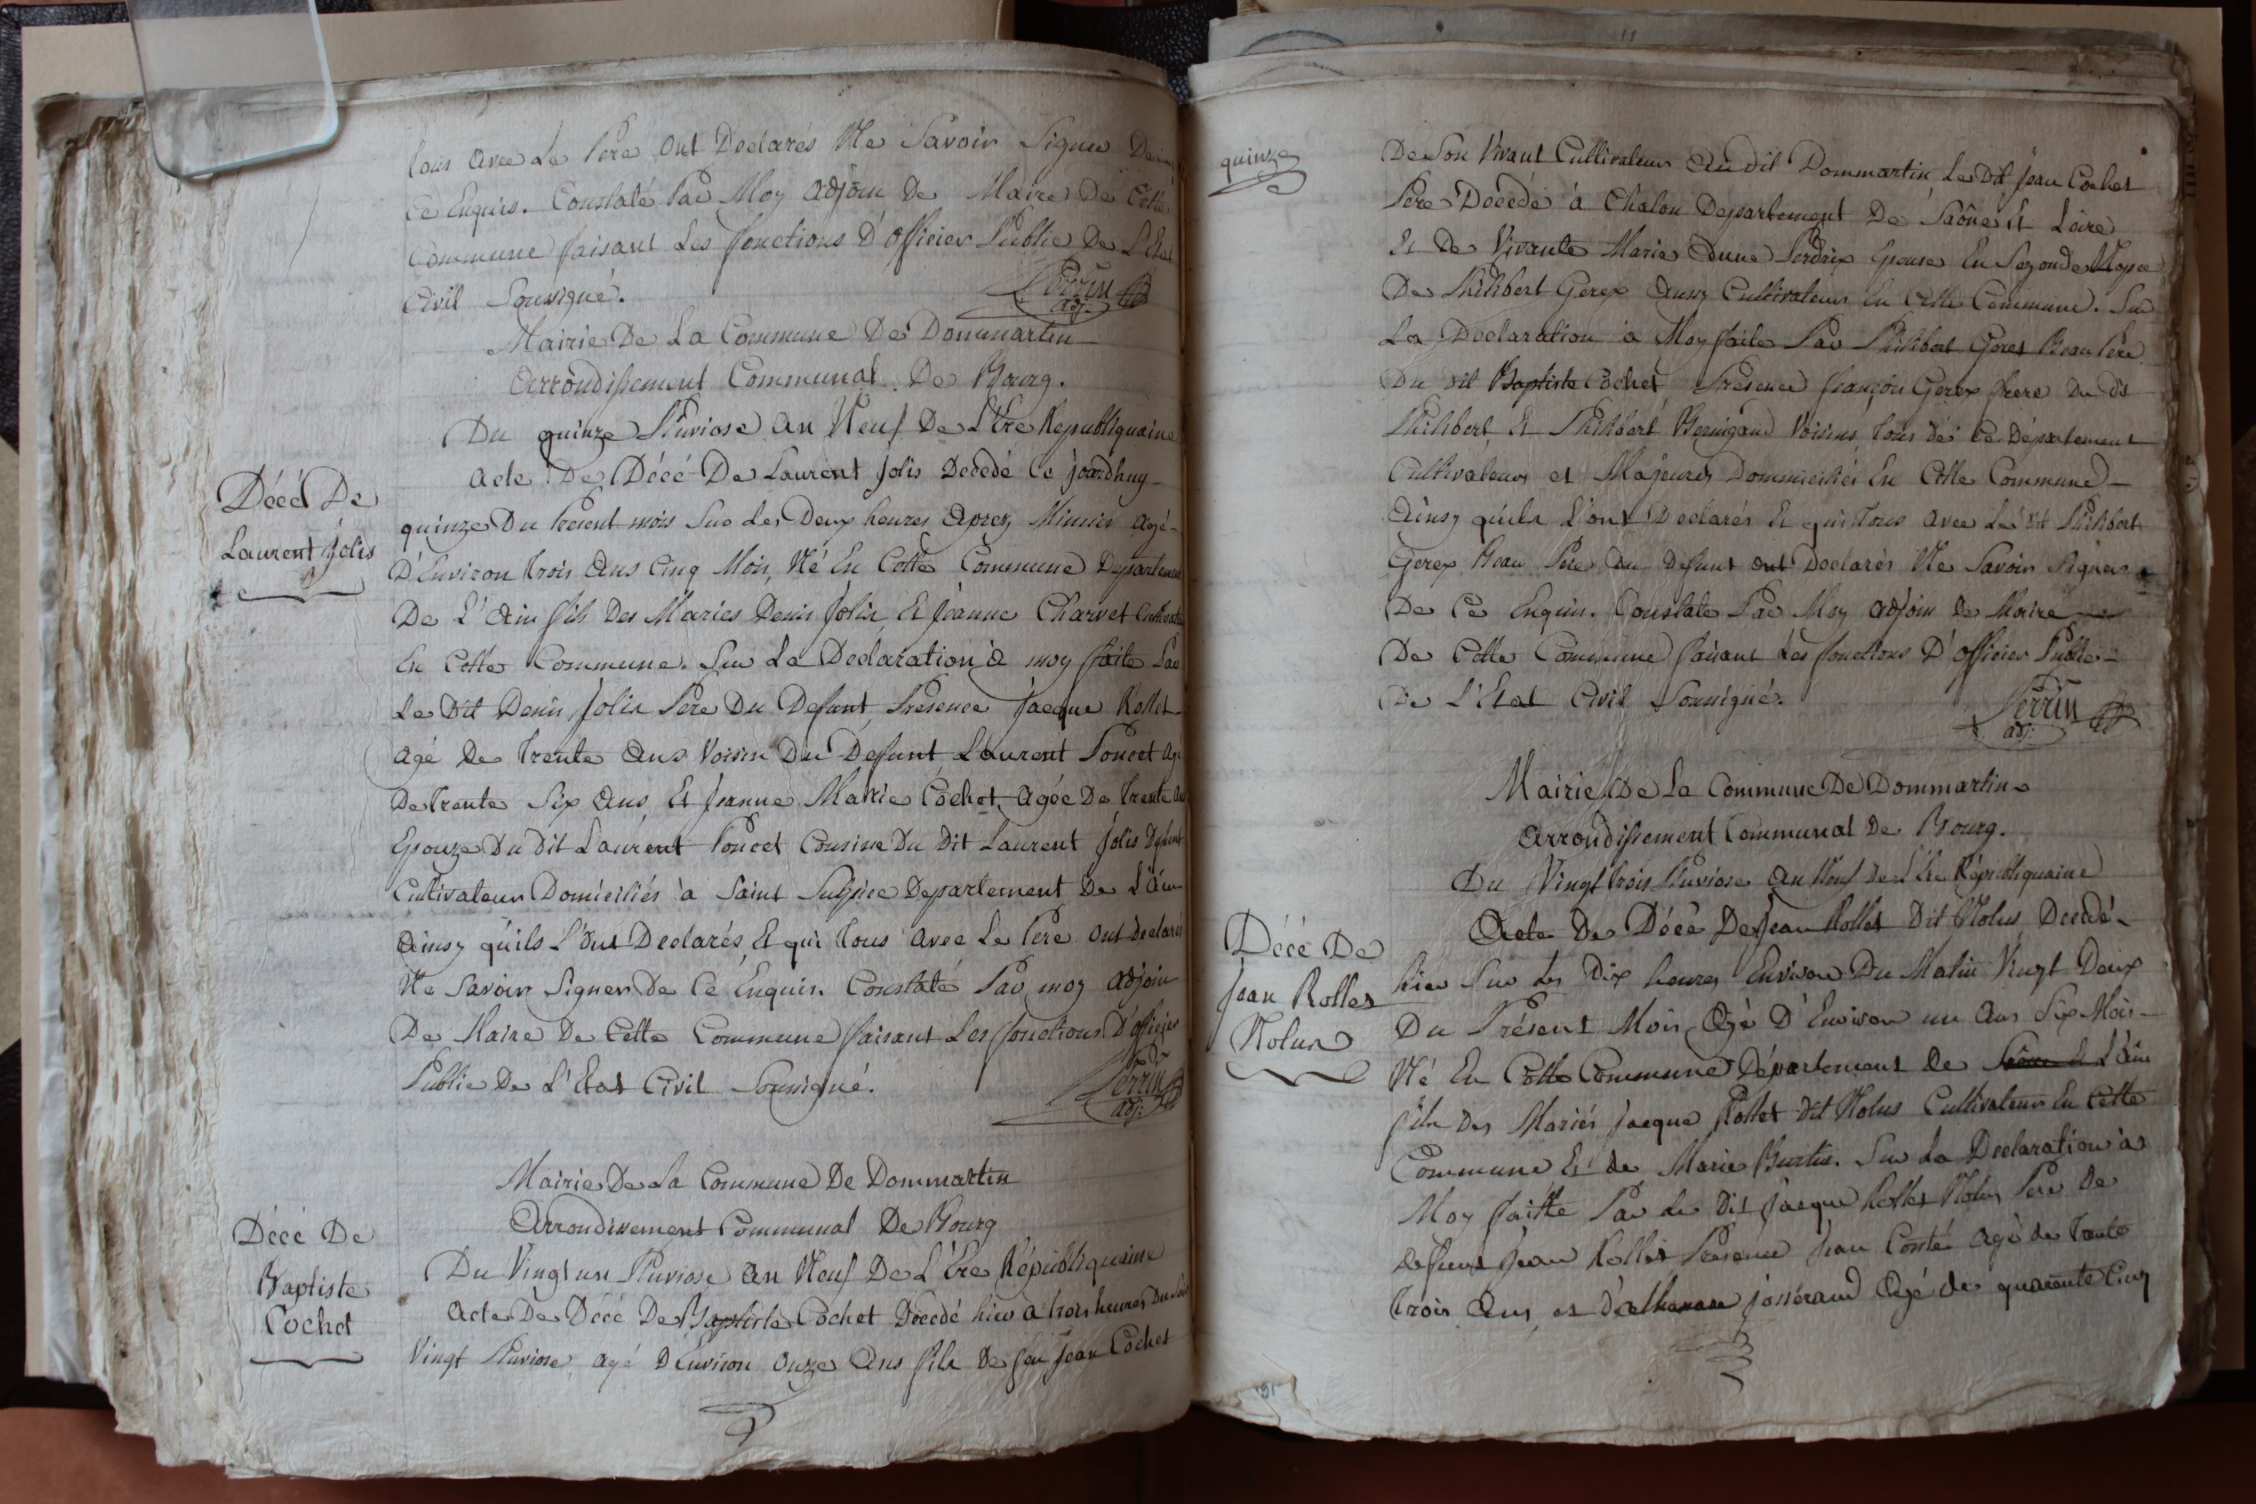 tous avec Le Pere ont Declarés Ne Savoir Signer De
Ce Enquis. Constaté Par Moy adjoin de Maire De Cette
Commune faisant Les fonctions D'officier Public De L'Etat
Civil Sousigné.
Perrin
adj.
Mairie De La Commune De Dommartin
Arrondissement Communal De Bourg.
Du quinze Pluviose an Neuf De L'Ere Republiquaine
Décé De
Laurent Jolis
acte De Décé De Laurent Jolis Dédedé Ce jourdhuy
quinze Du Présent mois Sur Les Deux heures Aprez Minuit agé
D'Environ trois Ans Cinq Mois, Né En Cette Commune Departement
De L'Ain fils Des Mariés Denis Jolis Et Jeanne Charvet Cultivateur
En Cette Commune. Sur La Declaration à moy faite Par
Le Dit Denis Jolis Pere Du Defunt Présence Jacque Rollet
agé de trente Ans Voisin Du Defunt, Laurent Poncet agé
De trente Six Ans, Et Jeanne Marie Cochet, agée De trente ans
Epouze Du Dit Laurent Poncet Cousine Du Dit Laurent Jolis Defunt
Cultivateur Domiciliés à Saint Sulpice Departement De L'Ain
Ainsy qu'ils L'Ont Declarés, Et qui tous Avec Le Pere ont declarés
Ne Savoir Signer De Ce Enquis. Constaté Par moy adjoin
De Maire De Cette Commune faisant Les fonctions D'officier
Public De L'Etat Civil Sousigné.
Perrin
adj.
Mairie De La Commune De Dommartin
Arrondissement Communal De Bourg
Décé De
Baptiste
Cochet
Du Vingt un Pluviose an Neuf De L'Ere Républiquaine
Acte De Décé De Baptiste Cochet Décedé hier a trois heures Du Soir
Vingt Pluviose, agé D'Environ onze Ans fils De feu Jean Cochet
quinze
De Son Vivant Cultivateur Au dit Dommartin Le Dit Jean Cochet
Pere Décedé à Chalon Departement De Saône Et Loire
Et De Vivante Marie Anne Perdrix Epouse En Segonde Nopce
De Philibert Gerex Aussy Cultivateur En Cette Commune. Sur
La Declaration à Moy faite Par Philibert Gerex Beau Pere
Du dit Baptiste Cochet, Présence françois Gerex frere Du dit
Philibert Et Philibert Voisins, tous de Ce Département
Cultivateurs et Majeures Dommiciliés En Cette Commune
Ainsy qu'ils L'ont Declarés Et qui tous avec Le dit Philibert
Gerex Beau Pere du Defunt ont Declarés Ne Savoir Signer
De Ce Enquis. Constaté Par Moy adjoin de Maire
De Cette Commune faisant Les fonctions D'officier Public
De L'Etat Civil Sousigné.
Perrin
adj.
Mairie De La Commune De Dommartin
Arrondissement Communal De Bourg.
Du Vingt trois Pluviose an Neuf de L'Ere Républiquaine
Décé De
Jean Rollet
Nolus
Acte De Décé De Jean Rollet Dit Nolus, Decedé
hier Sur Les Dix heures Environ Du Matin Vingt Deux
Du Présent Mois, Agé D'Environ un Ans Six Mois
Né En Cette Commune Département de L'Ain
fils Des Mariés Jacque Rollet dit Nolus Cultivateur En Cette
Commune Et de Marie Burtin. Sur La Declaration à
Moy faitte Par Le Dit Jacque Rollet Nolus Pere De
defunt Jean Rollet Présence Jean Conté agé de trente
trois Ans, et Josserand Agé de quarante Cinq